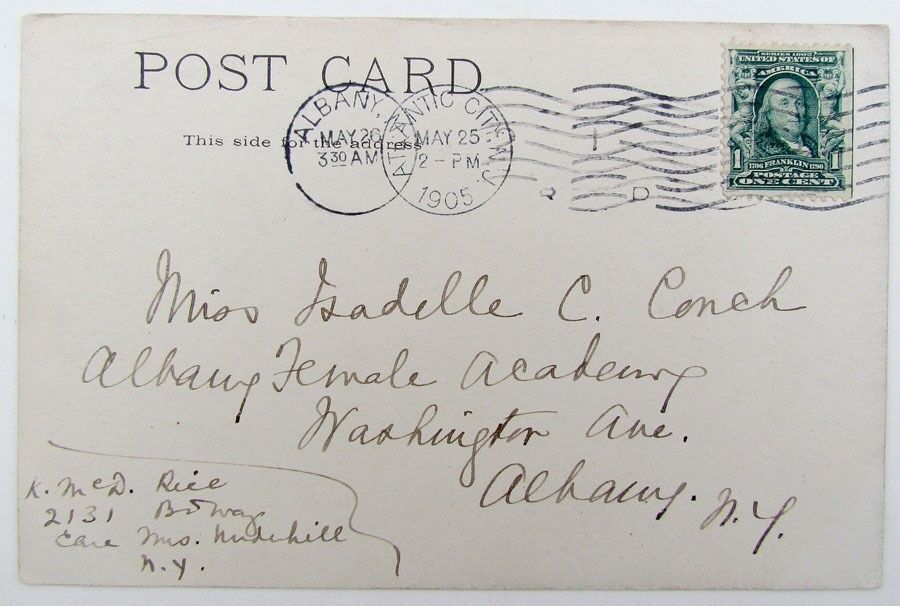 POST CARD
This side for the address
ALBANY, N.Y.
MAY 26
3 30 AM
ATLANTIC CITY, N.J.
MAY 25
2 - PM
1905
R D
SERIES 1902
UNITED STATES OF
AMERICA
1 1
1706 FRANKLIN 1790
POSTAGE
ONE CENT
Miss Isadelle C. Couch
Albany Female Academy
Washington Ave.
Albany. N.Y.
K. McD. Rice
2131 Bdway
Care Mrs. Underhill
N.Y.